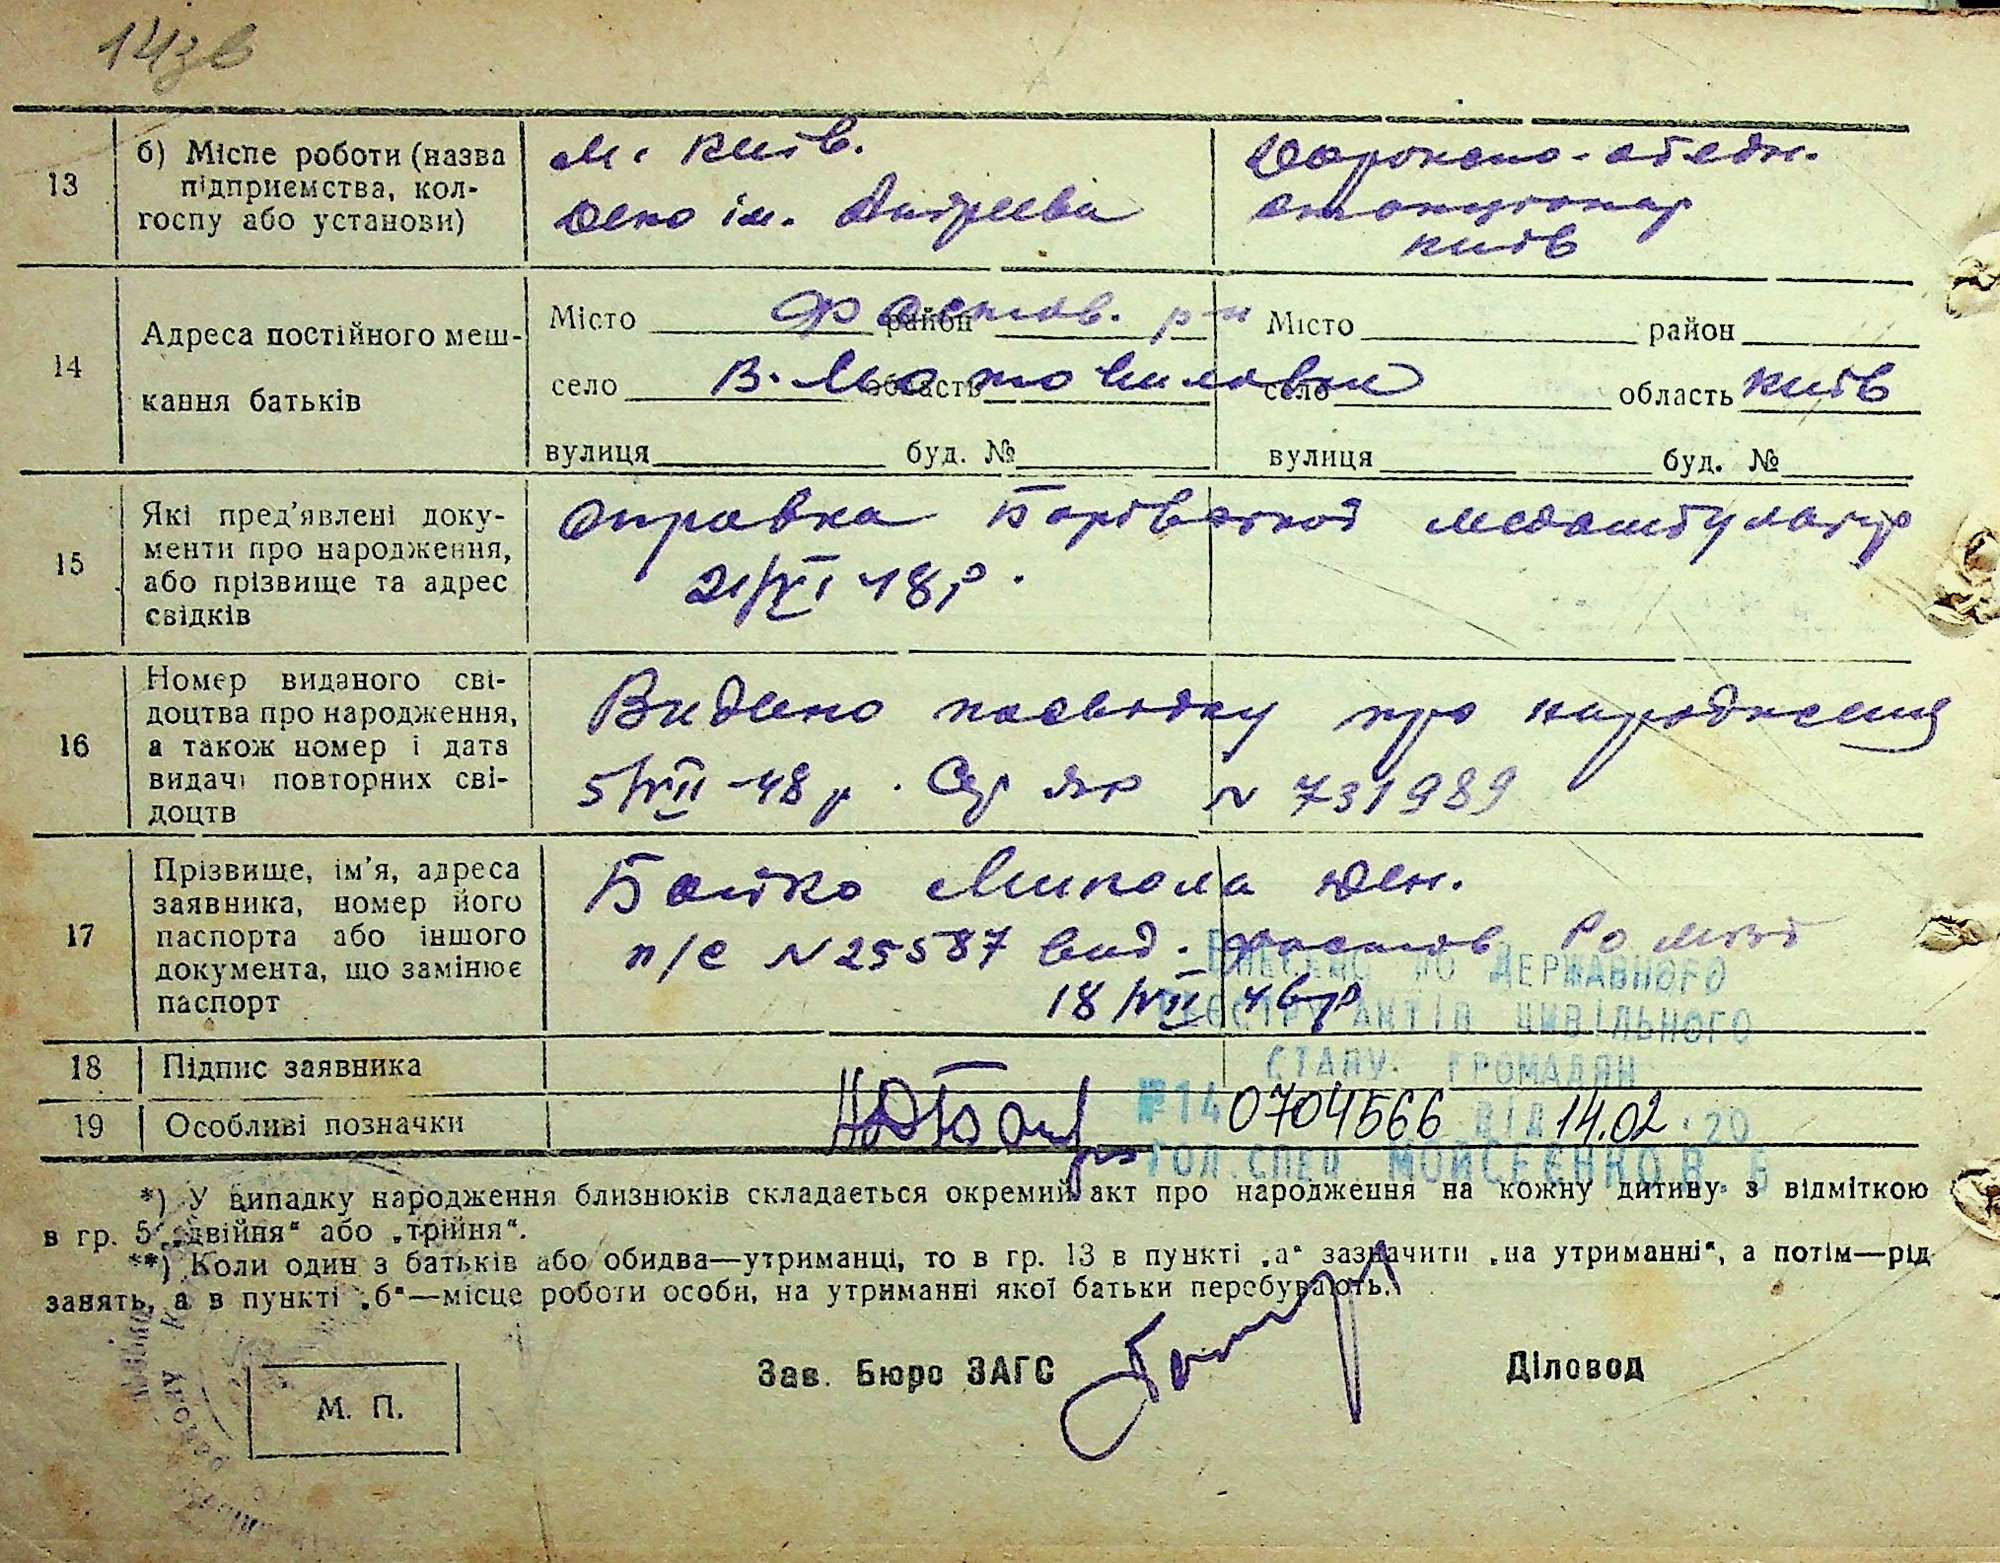 14зв
13
б) Місце роботи (назва підприємства, кол-госпу або установи)
м. Київ.
Депо ім. Андреева
Київ
14
Адреса постійного меш-
кання батьків
Місто район Фастов. р-н
село область В. Мотовиловка
вулиця буд. №
Місто район
село область Київ
вулиця буд. №
15
Які пред'явлені доку-
менти про народження,
або прізвище та адрес
свідків
справка Борівской медамбулатор
21/VI 48 р.
16
Номер виданого сві-
доцтва про народження,
а також номер і дата
видачі повторних сві-
доцтв
Видано посвідку про народження
5/VII-48 р. N 731989
17
Прізвище, ім'я, адреса
заявника, номер його
паспорта або іншого
документа, що замінює
паспорт
Бойко Микола Дем.
п/с N 25587 вид. Фастов Ро
18/VII 46 р
18
Підпис заявника
19
Особливі позначки
ВНЕСЕНО ДО ДЕРЖАВНОГО
РЕЄСТРУ АКТІВ ЦИВІЛЬНОГО
СТАНУ ГРОМАДЯН
№ 14 0704566 ВІД 14.02.20
ГОЛ.СПЕЦ МОЙСЕЄНКО В. Б
*) У випадку народження близнюків складається окремий акт про народження на кожну дитину з відміткою
в гр. 5 „двійня“ або „трійня“.
**) Коли один з батьків або обидва—утриманці, то в гр. 13 в пункті „а“ зазначити „на утриманні“, а потім—рід
занять, а в пункті „б“—місце роботи особи, на утриманні якої батьки перебувають.
Зав. Бюро ЗАГС
Діловод
М. П.